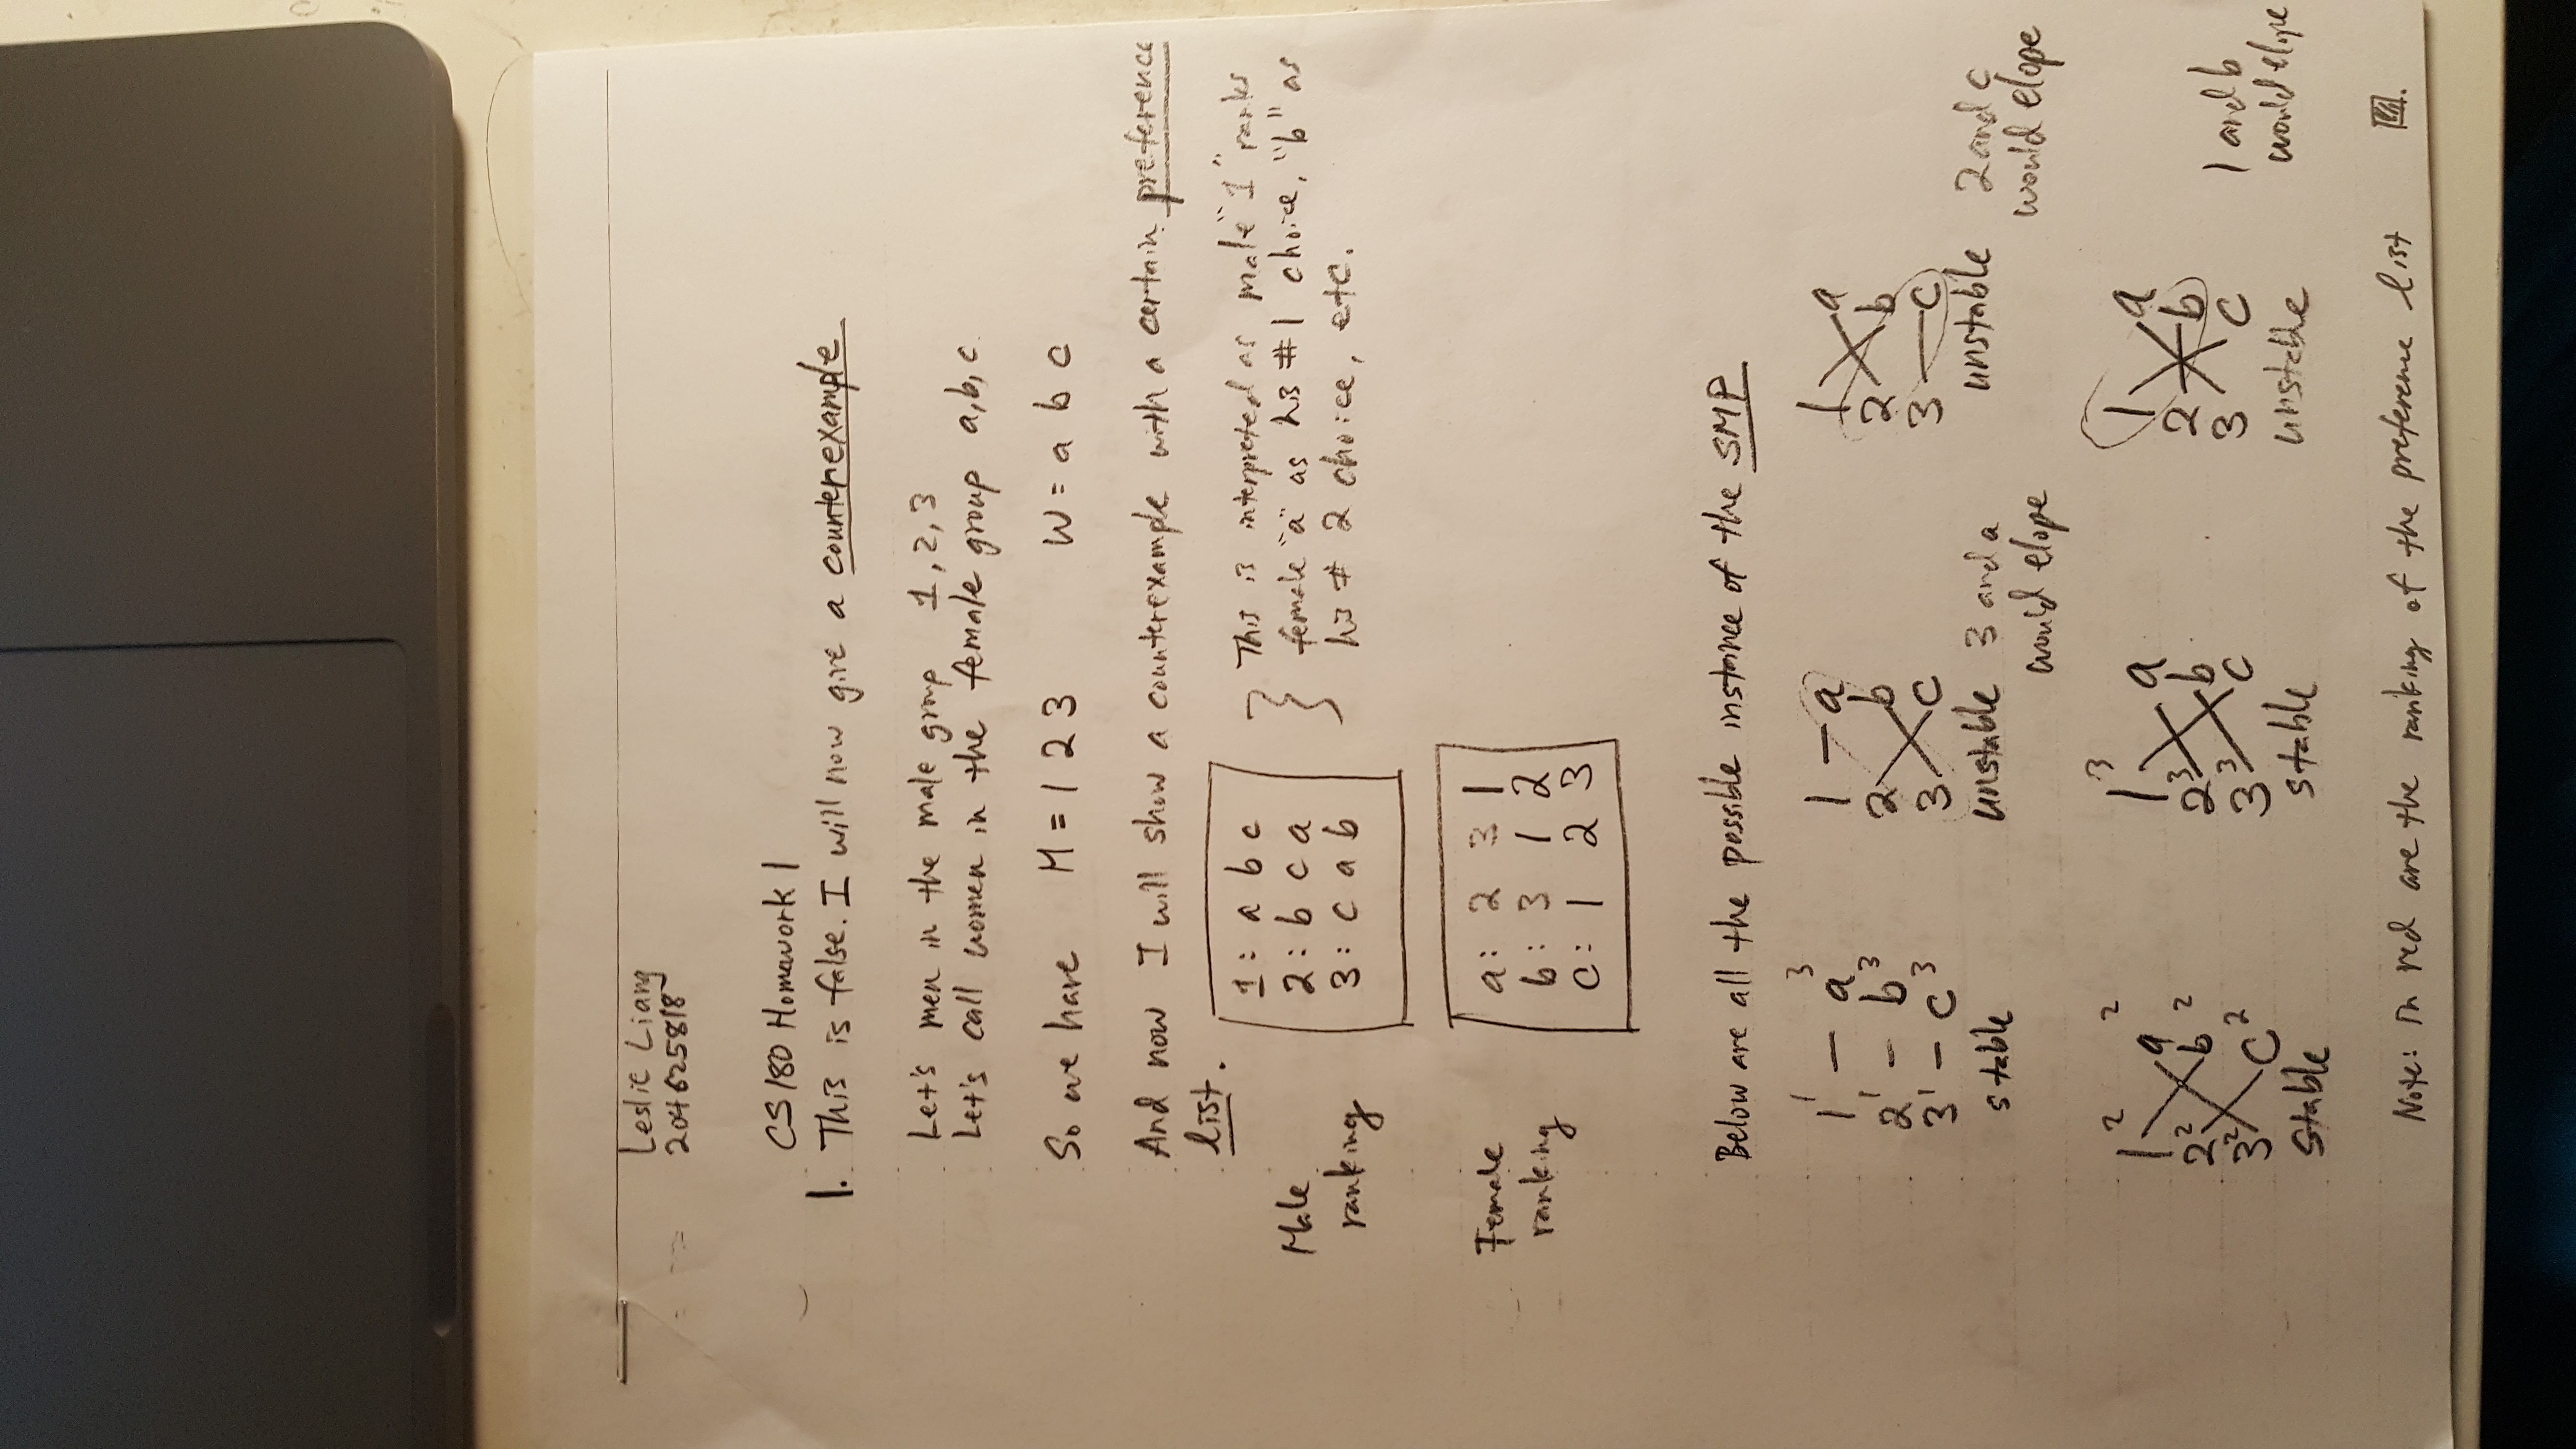 Leslie Liang
204625818
CS180 Homework 1
1. This is false. I will now give a counterexample
Let's men in the male group 1, 2, 3
Let's call women in the female group a, b, c
So we have M = 1 2 3 W = a b c
And now I will show a counterexample with a certain preference
list.
Male
ranking
1: a b c
2: b c a
3: c a b
} This is interpreted as male "1" ranks
female "a" as his #1 choice, "b" as
his # 2 choice, etc.
Female
ranking
a: 2 3 1
b: 3 1 2
c: 1 2 3
Below are all the possible instance of the SMP
1¹ - a³
2¹ - b³
3¹ - c³
stable
1 - a
2 b
3 c
unstable 3 and a
would elope
1 a
2 b
3 - c
unstable 2 and c
would elope
1² a²
2² b²
3² c²
stable
1³ a
2³ b
3³ c
stable
1 a
2 b
3 c
unstable
1 and b
would elope
Note: in red are the ranking of the preference list